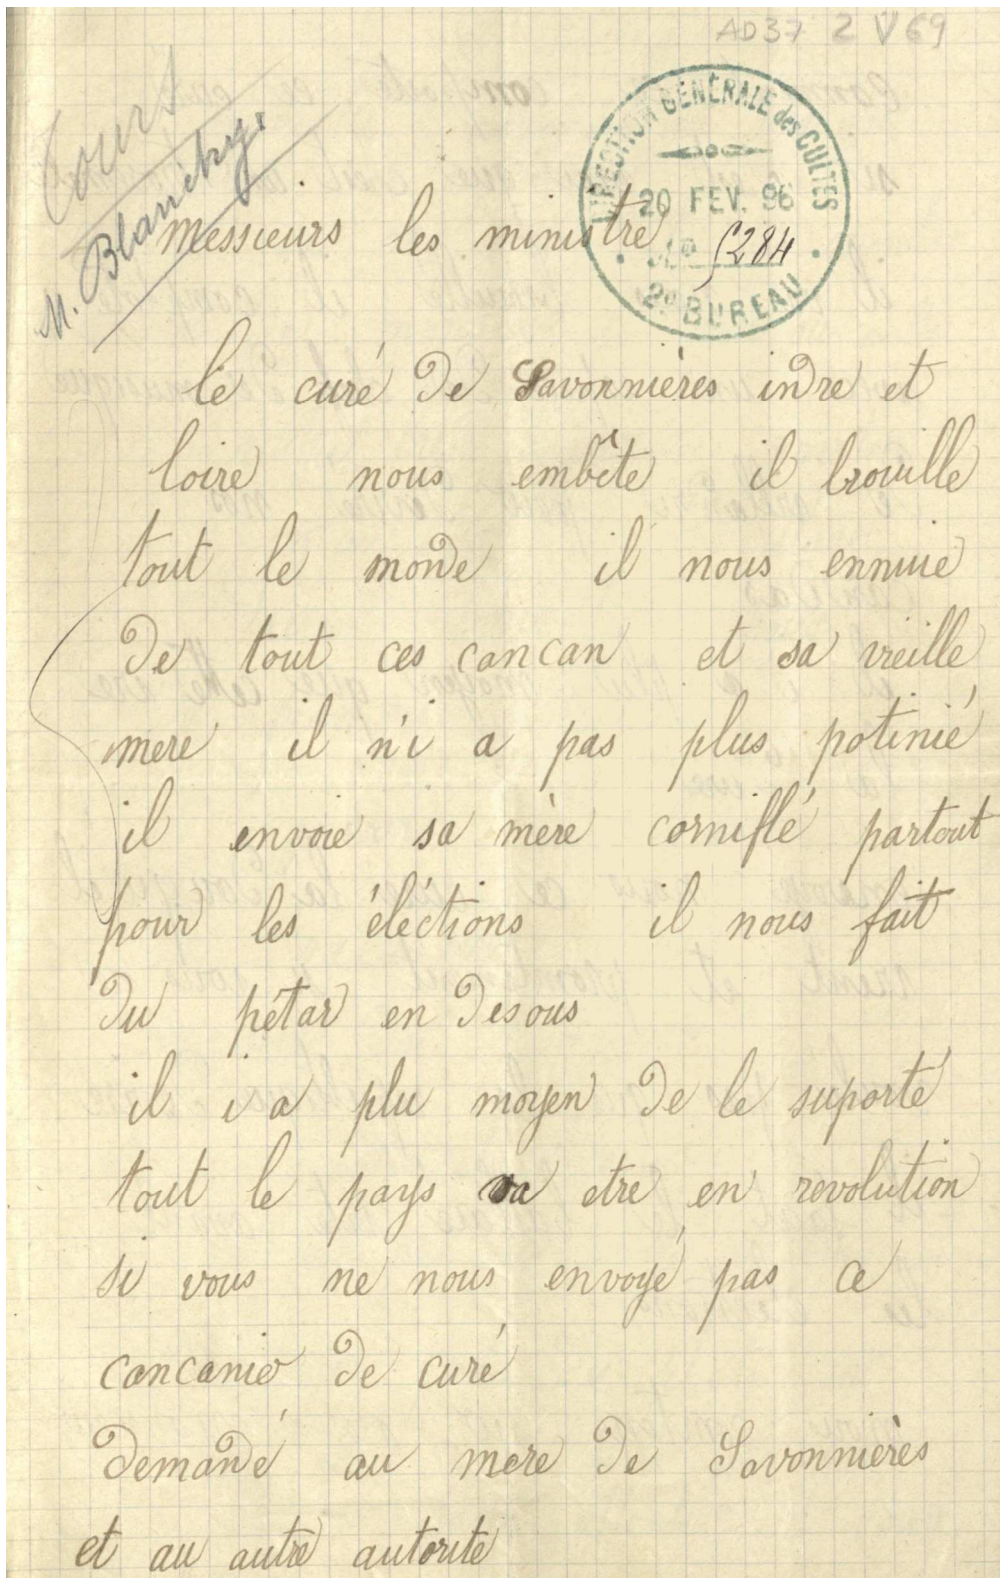 AD37 2 V 69
Tours
M. Blanchy.
DIRECTION GÉNÉRALE des CULTES
20 FEV. 96
No 5284
2e BUREAU
Messieurs les ministre
le curé de Savonnières indre et
loire nous embête il brouille
tout le monde il nous ennuie
de tout ces cancan et sa vieille
mere il n'i a pas plus potinié
il envoie sa mère corniflé partout
pour les éléctions il nous fait
du pétar en desous
il i a plu moyen de le suporté
tout le pays va etre en revolution
si vous ne nous envoyé pas ce
cancanié de curé
demandé au mere de Savonnières
et au autre autorité